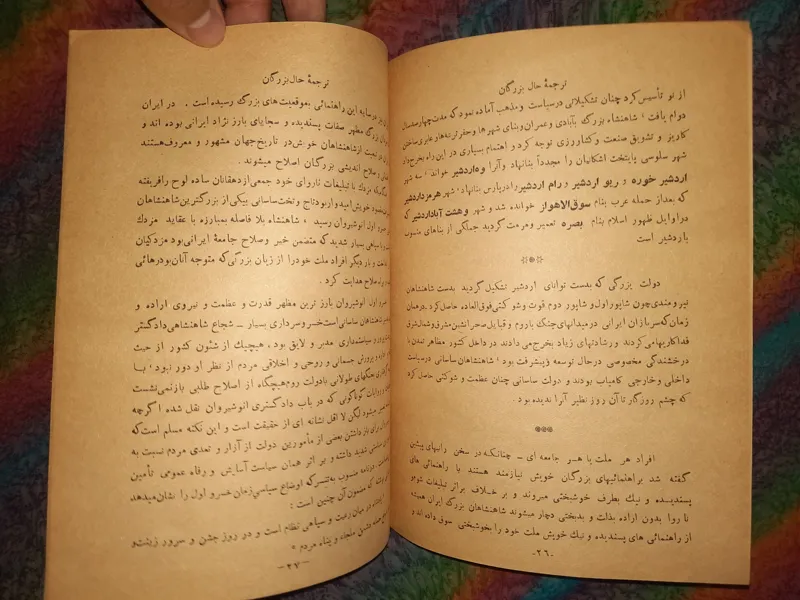 ترجمهٔ حال بزرگان
از نو تأسیس کرد چنان تشکیلاتی درسیاست و مذهب آماده نمود که مدت چهارصدسال
دوام یافت؛ شاهنشاه بزرگ بآبادی و عمران و بنای شهرها و حفر ترعه‌ها و
کاریز و تشویق صنعت و کشاورزی توجه کرد و اهتمام بسیاری در این راه بخرج داد
شهر سلوسی پایتخت اشکانیان را مجدداً بنانهاد و آنرا وه‌اردشیر خواند؛ سه شهر
اردشیر خوره و ریو اردشیر و رام اردشیر را در پارس بنانهاد؛ شهر هرمزداردشیر
که بعداز حمله عرب بنام سوق‌الاهواز خوانده شد و شهر وهشت آباد اردشیر که
در اوایل ظهور اسلام بنام بصره تعمیر و مرمت گردید جملگی از بناهای منسوب
باردشیر است
دولت بزرگی که بدست توانای اردشیر تشکیل گردید بدست شاهنشاهان
نیرومندی چون شاپور اول و شاپور دوم قوت و شوکتی فوق‌العاده حاصل کرد. در همان
زمان که سربازان ایرانی در میدانهای جنگ باروم و قبایل صحرانشین مشرق و شمال شرق
فداکاریها می‌کردند و رشادتهای زیاد بخرج می‌دادند در داخل کشور مظاهر تمدن با
درخشندگی مخصوصی در حال توسعه و پیشرفت بود؛ شاهنشاهان ساسانی در سیاست
داخلی و خارجی کامیاب بودند و دولت ساسانی چنان عظمت و شوکتی حاصل کرد
که چشم روزگار تا آن روز نظیر آنرا ندیده بود.
افراد هر ملت یا هر جامعه ای ــ چنانکه در سخن رانیهای پیشین
گفته شد براهنمائیهای بزرگان خویش نیازمند هستند با راهنمائی های
پسندیده و نیک بطرف خوشبختی میروند و بر خلاف براثر تبلیغات شوم و
ناروا بدون اراده بذلت و بدبختی دچار میشوند شاهنشاهان بزرگ ایران همیشه
از راهنمائی های پسندیده و نیک خویش ملت خود را بخوشبختی سوق داده اند و
-۲۶-
ترجمهٔ حال بزرگان
در سایه این راهنمائی بموقعیت‌های بزرگ رسیده است. در ایران
بزرگ مظهر صفات پسندیده و سجایای بارز نژاد ایرانی بوده اند و
از شاهنشاهان خویش در تاریخ جهان مشهور و معروف هستند
و صلاح اندیشی بزرگان اصلاح میشوند.
مزدک با تبلیغات ناروای خود جمعی از دهقانان ساده لوح را فریفته
خویش امیدوار بود تاج و تخت ساسانی بیکی از بزرگترین شاهنشاهان
اول انوشیروان رسید، شاهنشاه بلا فاصله بمبارزه با عقاید مزدک
سیاهی بسیار شدید که متضمن خیر وصلاح جامعهٔ ایرانی بود مزدکیان
و بار دیگر افراد ملت خود را از زیان بزرگی که متوجه آنان بود رهائی
صلاح هدایت کرد.
اول انوشیروان بارز ترین مظهر قدرت و عظمت و نیروی اراده و
شاهنشاهان ساسانی است خسرو سرداری بسیار ــ شجاع شاهنشاهی دادگستر
و سیاستمداری مدبر و لایق بود، هیچیک از شئون کشور از حیث
و پرورش جسمانی و روحی و اخلاقی مردم از نظر او دور نبود؛ با
جنگهای طولانی بادولت روم هیچگاه از اصلاح طلبی بازنمی‌نشست
روایات گوناگونی که در باب دادگستری انوشیروان نقل شده اگرچه
میشود لیکن لااقل نشانه ای از حقیقت است و این نکته مسلم است که
برای باز داشتن بعضی از مأمورین دولت از آزار و تعدی مردم نسبت به
شدید داشته و بر اثر همان سیاست آسایش و رفاه عمومی تأمین
منسوب به‌تنسر که اوضاع سیاسی زمان خسرو اول را نشان میدهد
که مضمون آن چنین است:
در میان رعیت و سپاهی نظام است و در روز جشن و سرور زینت و
ملجاء و پناه مردم»
-۲۷-